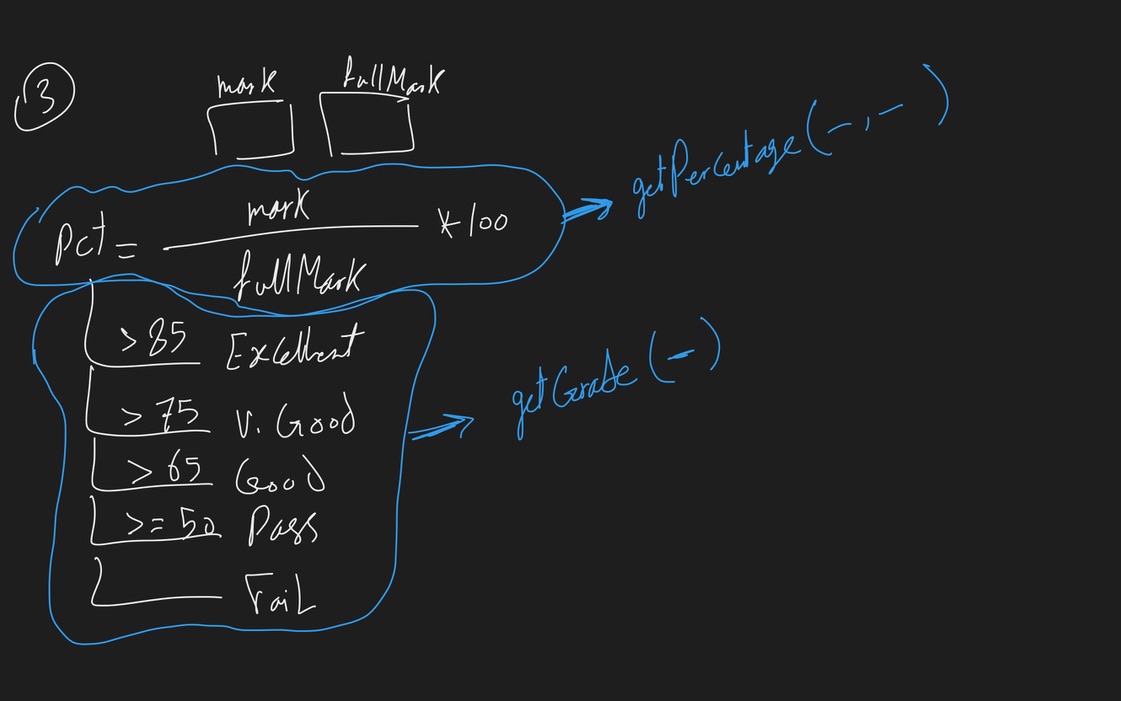 3
mark fullMark
Pct = mark / fullMark * 100
getPercentage(-,-)
>85 Excellent
>75 V. Good
>65 Good
>=50 Pass
Fail
getGrade(-)